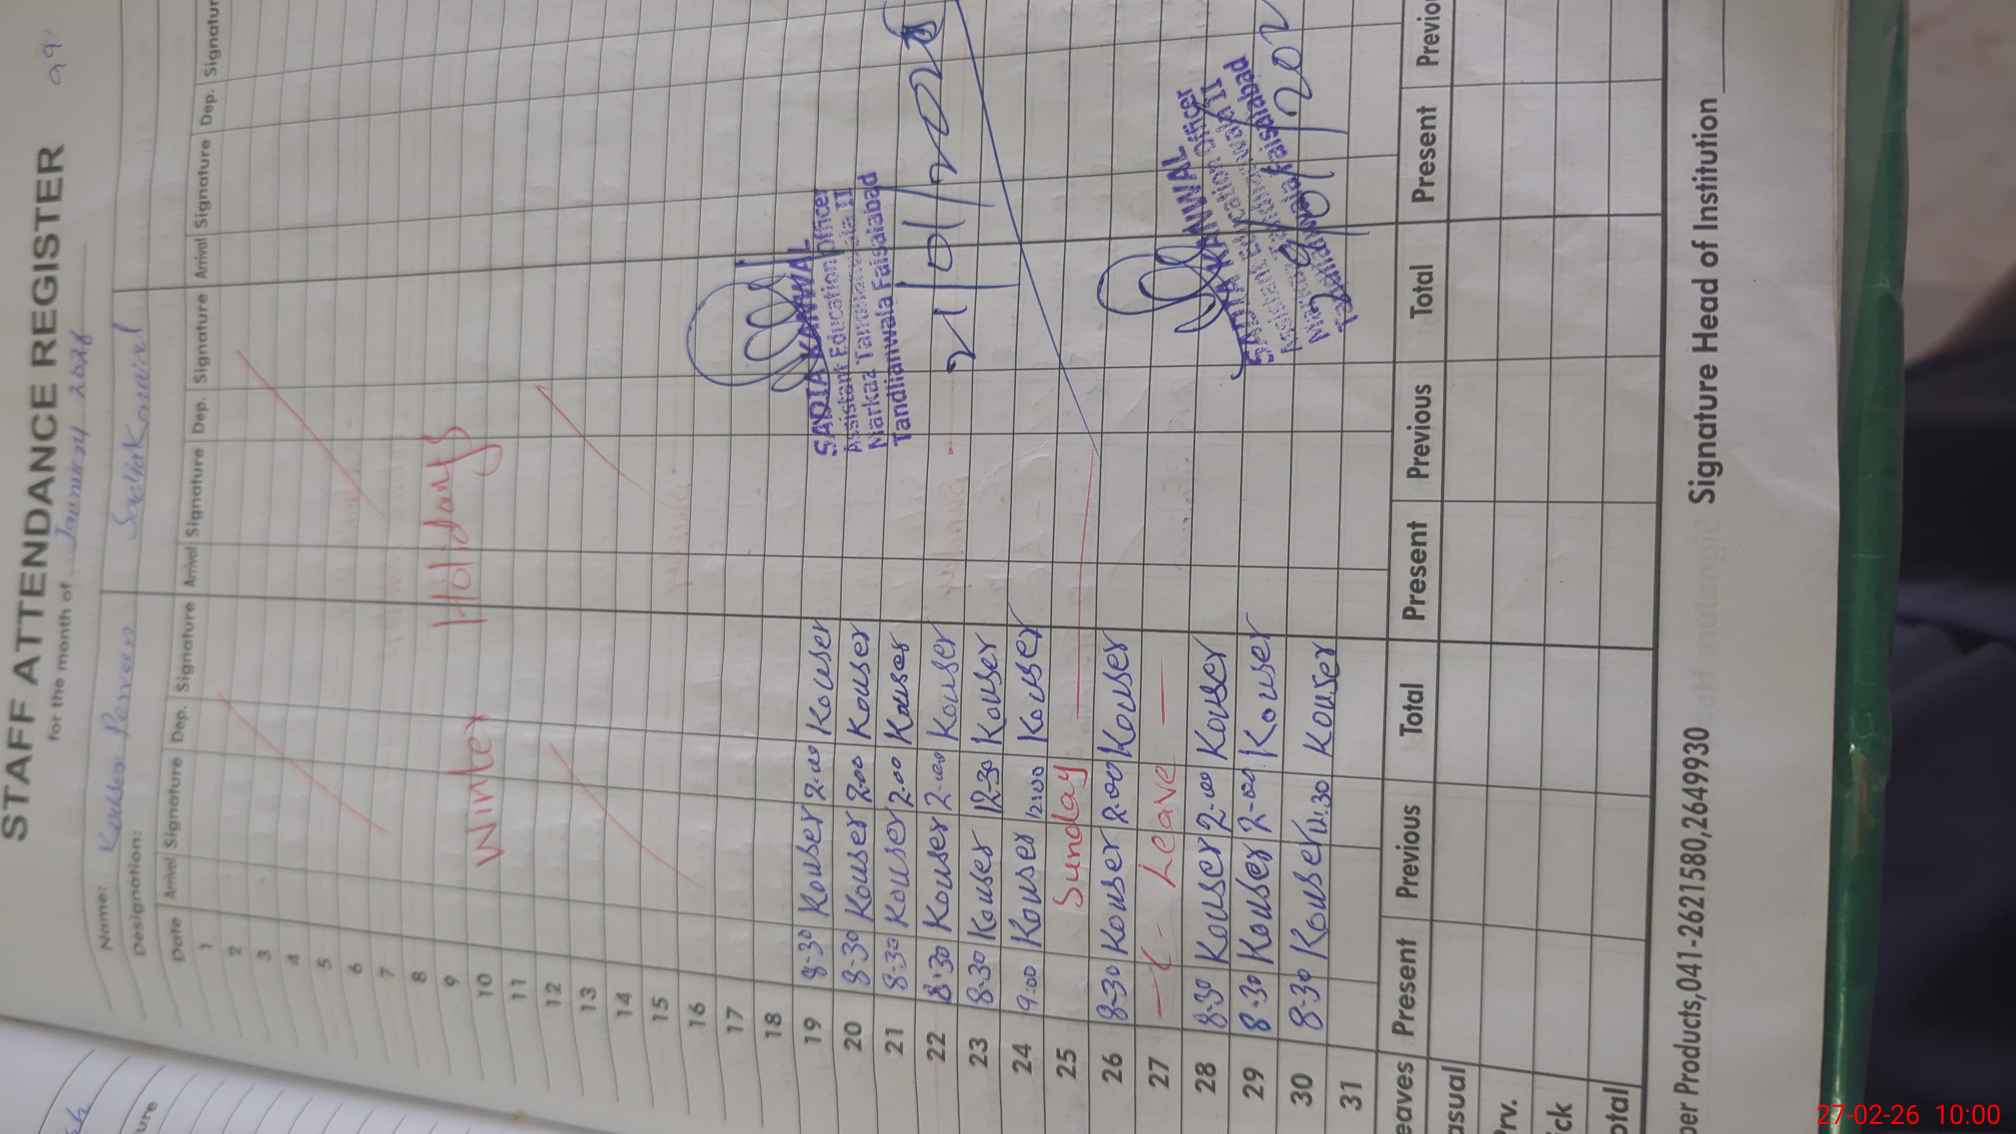 STAFF ATTENDANCE REGISTER
for the month of January 2026
Name: Kouser Parveen Sadia Kanwal
Designation:
Date Arrival Signature Dep. Signature Arrival Signature Dep. Signature Arrival Signature Dep. Signatur
1
2
3
4
5
6
7
8
9
10 Winter Holidays
11
12
13
14
15
16
17
18
19 8-30 Kouser 2-00 Kouser
20 8-30 Kouser 2.00 Kouser
21 8-30 Kouser 2.00 Kouser
22 8-30 Kouser 2-00 Kouser
23 8-30 Kouser 12-30 Kouser
24 9:00 Kouser 12:00 Kouser
25 Sunday
26 8-30 Kouser 2.00 Kouser
27 Leave
28 8-30 Kouser 2-00 Kouser
29 8-30 Kouser 2-00 Kouser
30 8-30 Kouser 12.30 Kouser
31
SADIA KANWAL
Assistant Education Officer
Markaz Tandlianwala II
Tandlianwala Faisalabad
21/01/2026
SADIA KANWAL
Assistant Education Officer
Markaz Tandlianwala II
Tandlianwala Faisalabad
/01/202
eaves Present Previous Total Present Previous Total Present Previo
asual
rv.
ick
otal
per Products,041-2621580,2649930 Signature Head of Institution
27-02-26 10:00